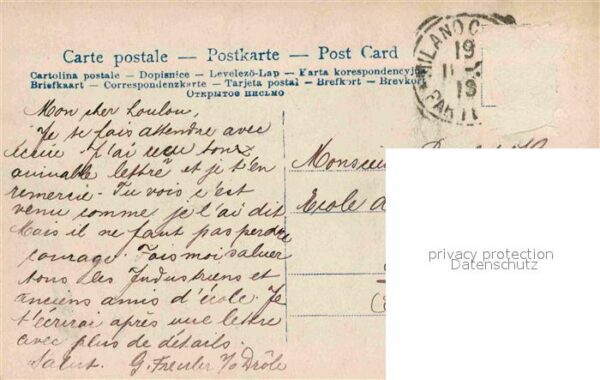 Carte postale — Postkarte — Post Card
Cartolina postale – Dopisnice – Levelező-Lap – Karta korespondencyjna
Briefkaart – Correspondenzkarte – Tarjeta postal – Brefkort – Brevkort
Открытое письмо
MILANO C
19
11
19
PAR
Mon cher Loulou,
Je te fais attendre avec
J'ai reçu ton
aimable lettre et je t'en
remercie. Tu vois c'est
venu comme je l'ai dit
Mais il ne faut pas perdre
courage. Fais moi saluer
tous les Industriens et
anciens amis d'école. Je
t'écrirai après une lettre
avec plus de détails.
Salut. G. Freuler
Drôle
Monsieur
Ecole
privacy protection
Datenschutz